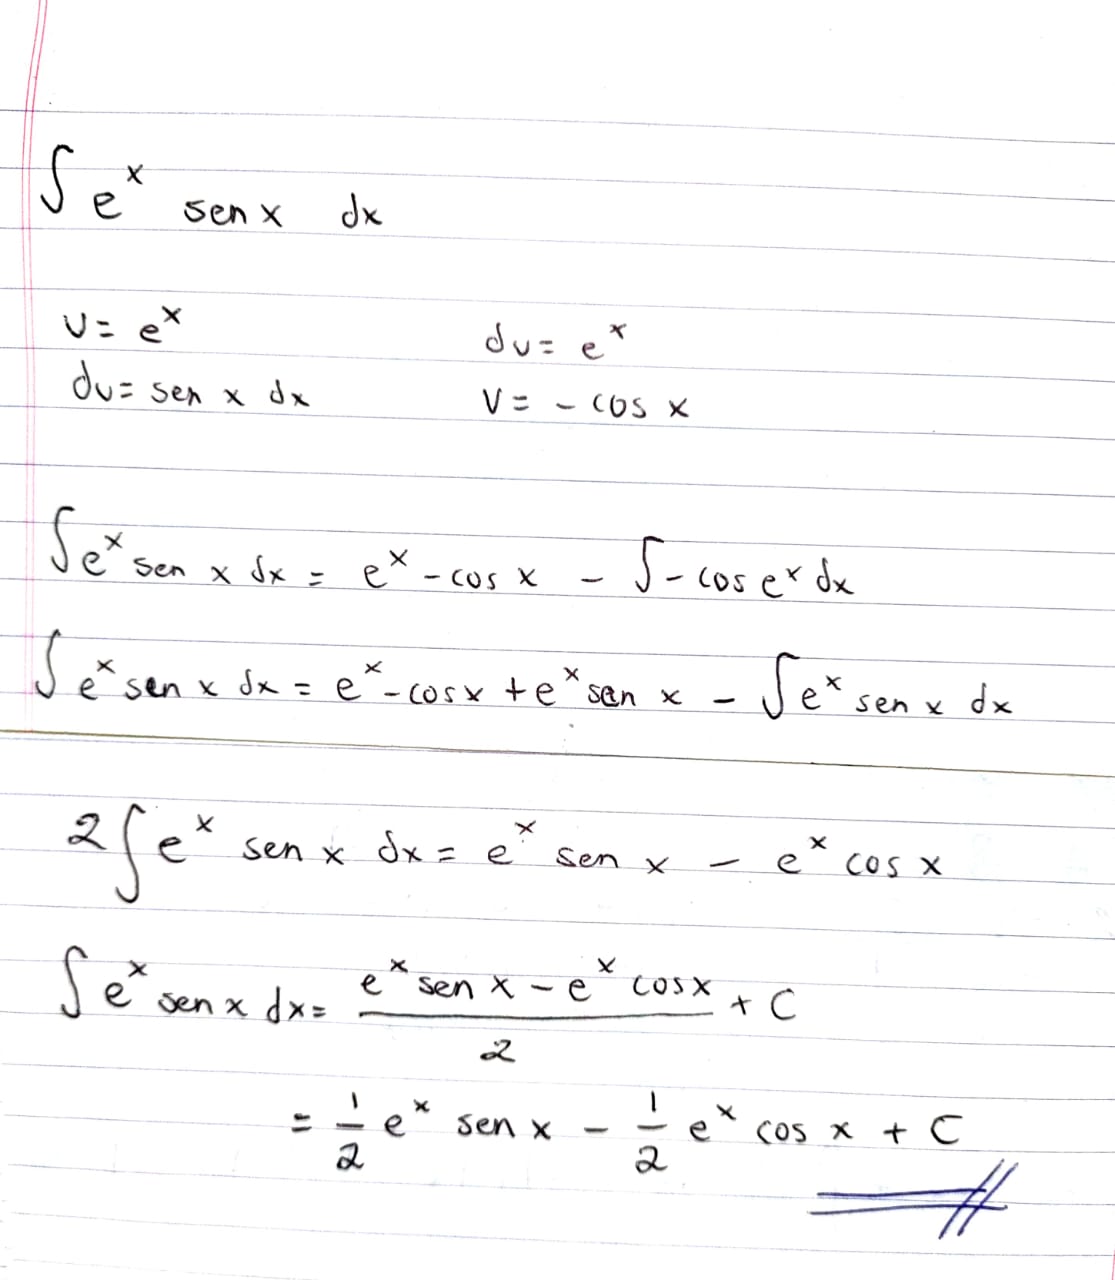 ∫ e^x sen x dx
u = e^x du = e^x
dv = sen x dx v = - cos x
∫ e^x sen x dx = e^x - cos x - ∫ - cos e^x dx
∫ e^x sen x dx = e^x - cos x + e^x sen x - ∫ e^x sen x dx
2 ∫ e^x sen x dx = e^x sen x - e^x cos x
∫ e^x sen x dx = (e^x sen x - e^x cos x)/2 + C
= 1/2 e^x sen x - 1/2 e^x cos x + C